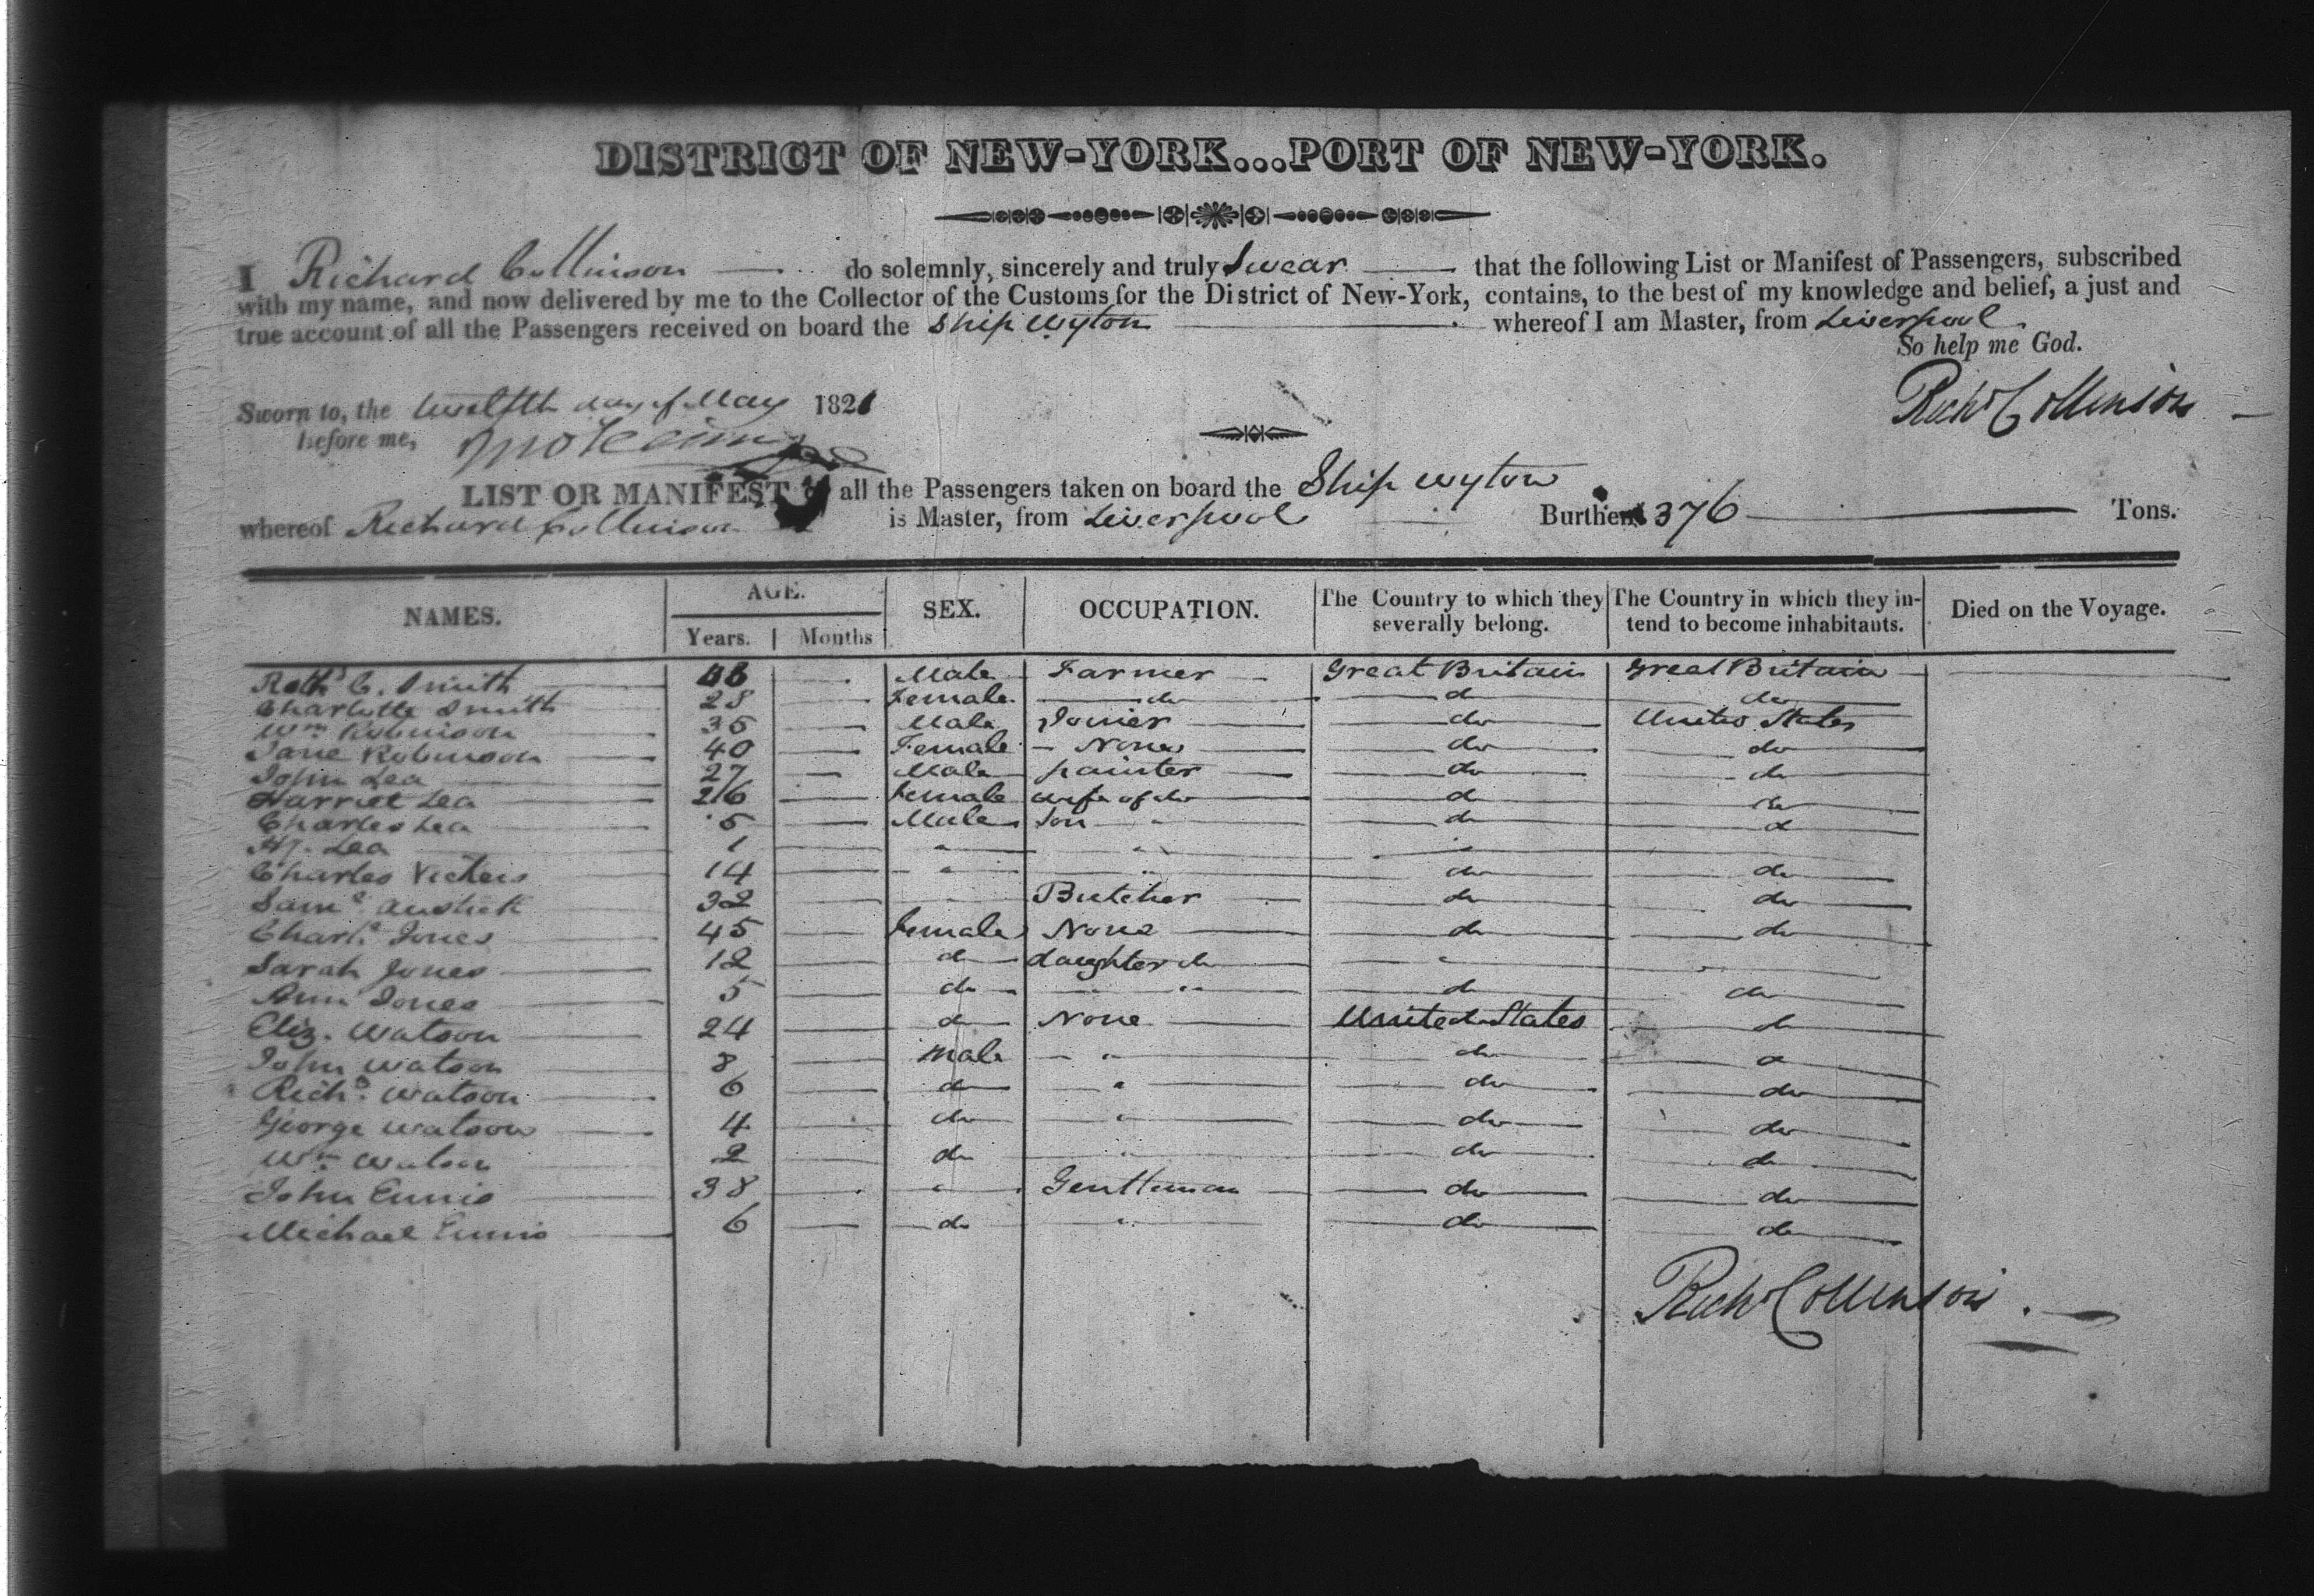 DISTRICT OF NEW-YORK...PORT OF NEW-YORK.
I Richard Collinson do solemnly, sincerely and truly Swear that the following List or Manifest of Passengers, subscribed
with my name, and now delivered by me to the Collector of the Customs for the District of New-York, contains, to the best of my knowledge and belief, a just and
true account of all the Passengers received on board the Ship Wyton whereof I am Master, from Liverpool
So help me God.
Richd Collinson
Sworn to, the twelfth day of May 1821
before me,
LIST OR MANIFEST all the Passengers taken on board the Ship Wyton
whereof Richard Collinson is Master, from Liverpool Burthen 376 Tons.
NAMES. AGE. SEX. OCCUPATION. The Country to which they severally belong. The Country in which they intend to become inhabitants. Died on the Voyage.
Years. Months
C. Smith Male Farmer Great Britain Great Britain
Charlotte Smith 28 Female do do do
Wm Robinson 35 Male Joiner do United States
Jane Robinson 40 Female None do do
John Lea 27 Male painter do do
Harriet Lea 26 Female wife of do do do
Charles Lea 5 Male Son do do
Hy. Lea 1 " " "
Charles Vickers 14 " " do do
Saml 32 Butcher do do
Charle Jones 45 Female None do do
Sarah Jones 12 do daughter do " "
Ann Jones 5 do " " do do
Eliz. Watson 24 do None United States do
John Watson 8 male " do do
Richd. Watson 6 do " do do
George Watson 4 do " do do
Wm Watson 2 do " do do
John Ennis 38 " Gentleman do do
Michael Ennis 6 do " do do
Richd Collinson